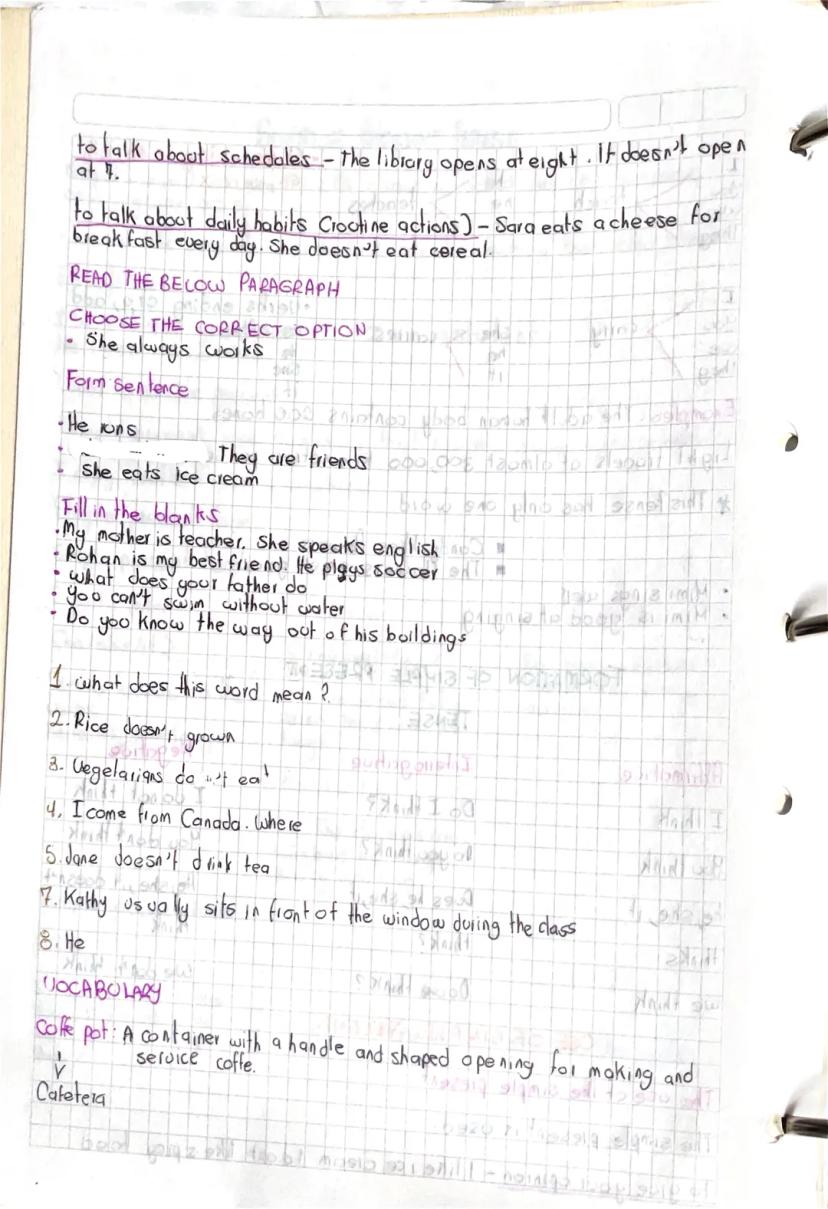 to talk about schedules - the library opens at eight. it doesn't open
at 7.
to talk about daily habits (roctine actions) - Sara eats a cheese for
breakfast every day. She doesn't eat cereal.
READ THE BELOW PARAGRAPH
CHOOSE THE CORRECT OPTION
• She always works
Form sentence
• He runs
• They are friends
• She eats ice cream
Fill in the blanks
• My mother is teacher. She speaks english
• Rohan is my best friend. He plays soccer
• what does your father do
• you can't swim without water
• Do you know the way out of his buildings
1. what does this word mean?
2. Rice doesn't grown
3. Vegetarians do eat
4. I come from Canada. Where
5. Jane doesn't drink tea
7. Kathy usually sits in front of the window during the class
8. He
VOCABULARY
Coffe pot: A container with a handle and shaped opening for making and
service coffe.
Cafetera